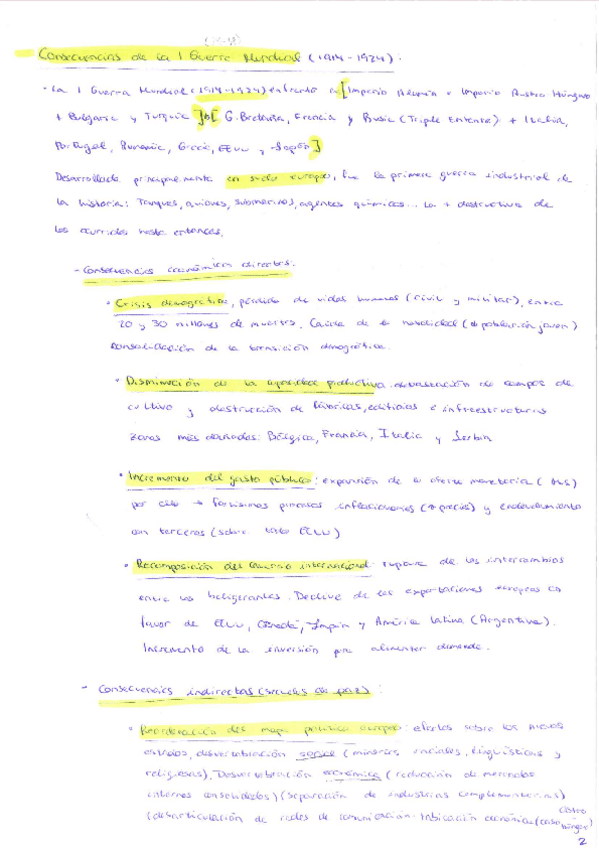 Consecuencias de la I Guerra Mundial (1914-1924):
· La I Guerra Mundial (1914-1924) enfrentó a [Imperio Alemán + Imperio Austro Húngaro
+ Bulgaria y Turquía] b[ G. Bretaña, Francia y Rusia (Triple Entente) + Italia,
Portugal, Rumanía, Grecia, EEUU y Japón]
Desarrollada principalmente en suelo europeo, fue la primera guerra industrial de
la historia: Tanques, aviones, submarinos, agentes químicos... La + destructiva de
las ocurridas hasta entonces.
- Consecuencias económicas directas:
· Crisis demográfica, pérdida de vidas humanas (civil y militar), entre
20 y 30 millones de muertes. Caída de la natalidad (población joven)
de la transición demográfica.
· Disminución de la capacidad productiva: devastación de campos de
cultivo y destrucción de fábricas, edificios e infraestructuras
zonas más dañadas: Bélgica, Francia, Italia y Serbia
· Incremento del gasto público: expansión de la oferta monetaria
por ello → fortísimas presiones inflacionarias (↑ precios) y endeudamiento
con terceros (sobre todo EEUU)
· Recomposición del comercio internacional: ruptura de los intercambios
entre los beligerantes. Declive de las exportaciones europeas en
favor de EEUU, Canadá, Japón y América Latina (Argentina).
Incremento de la inversión para alimentar demanda.
- Consecuencias indirectas (secuelas de paz):
· Reordenación del mapa político europeo: efectos sobre los nuevos
estados, desvertebración social (minorías raciales, lingüísticas y
religiosas), Desvertebración económica (reducción de mercados
internos consolidados) (separación de industrias complementarias)
(desarticulación de redes de comunicación económica (caso
2